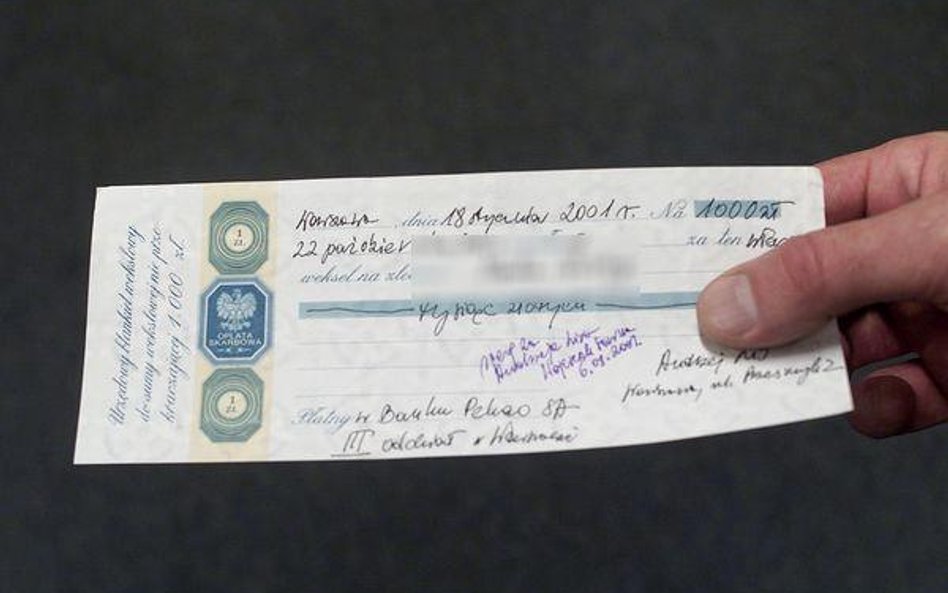 Urzędowy blankiet wekslowy
do sumy wekslowej nie prze-
kraczającej 1.000 zł.
1
ZŁ
OPŁATA
SKARBOWA
1
ZŁ
Warszawa, dnia 18 stycznia 2001 r. Na 1000 zł
22 paździer za ten
weksel na zlec
tysiąc złotych
6.01.2001
Andrzej
Warszawa, ul.
Płatny w Banku Pekao SA
III oddział w Warszawie